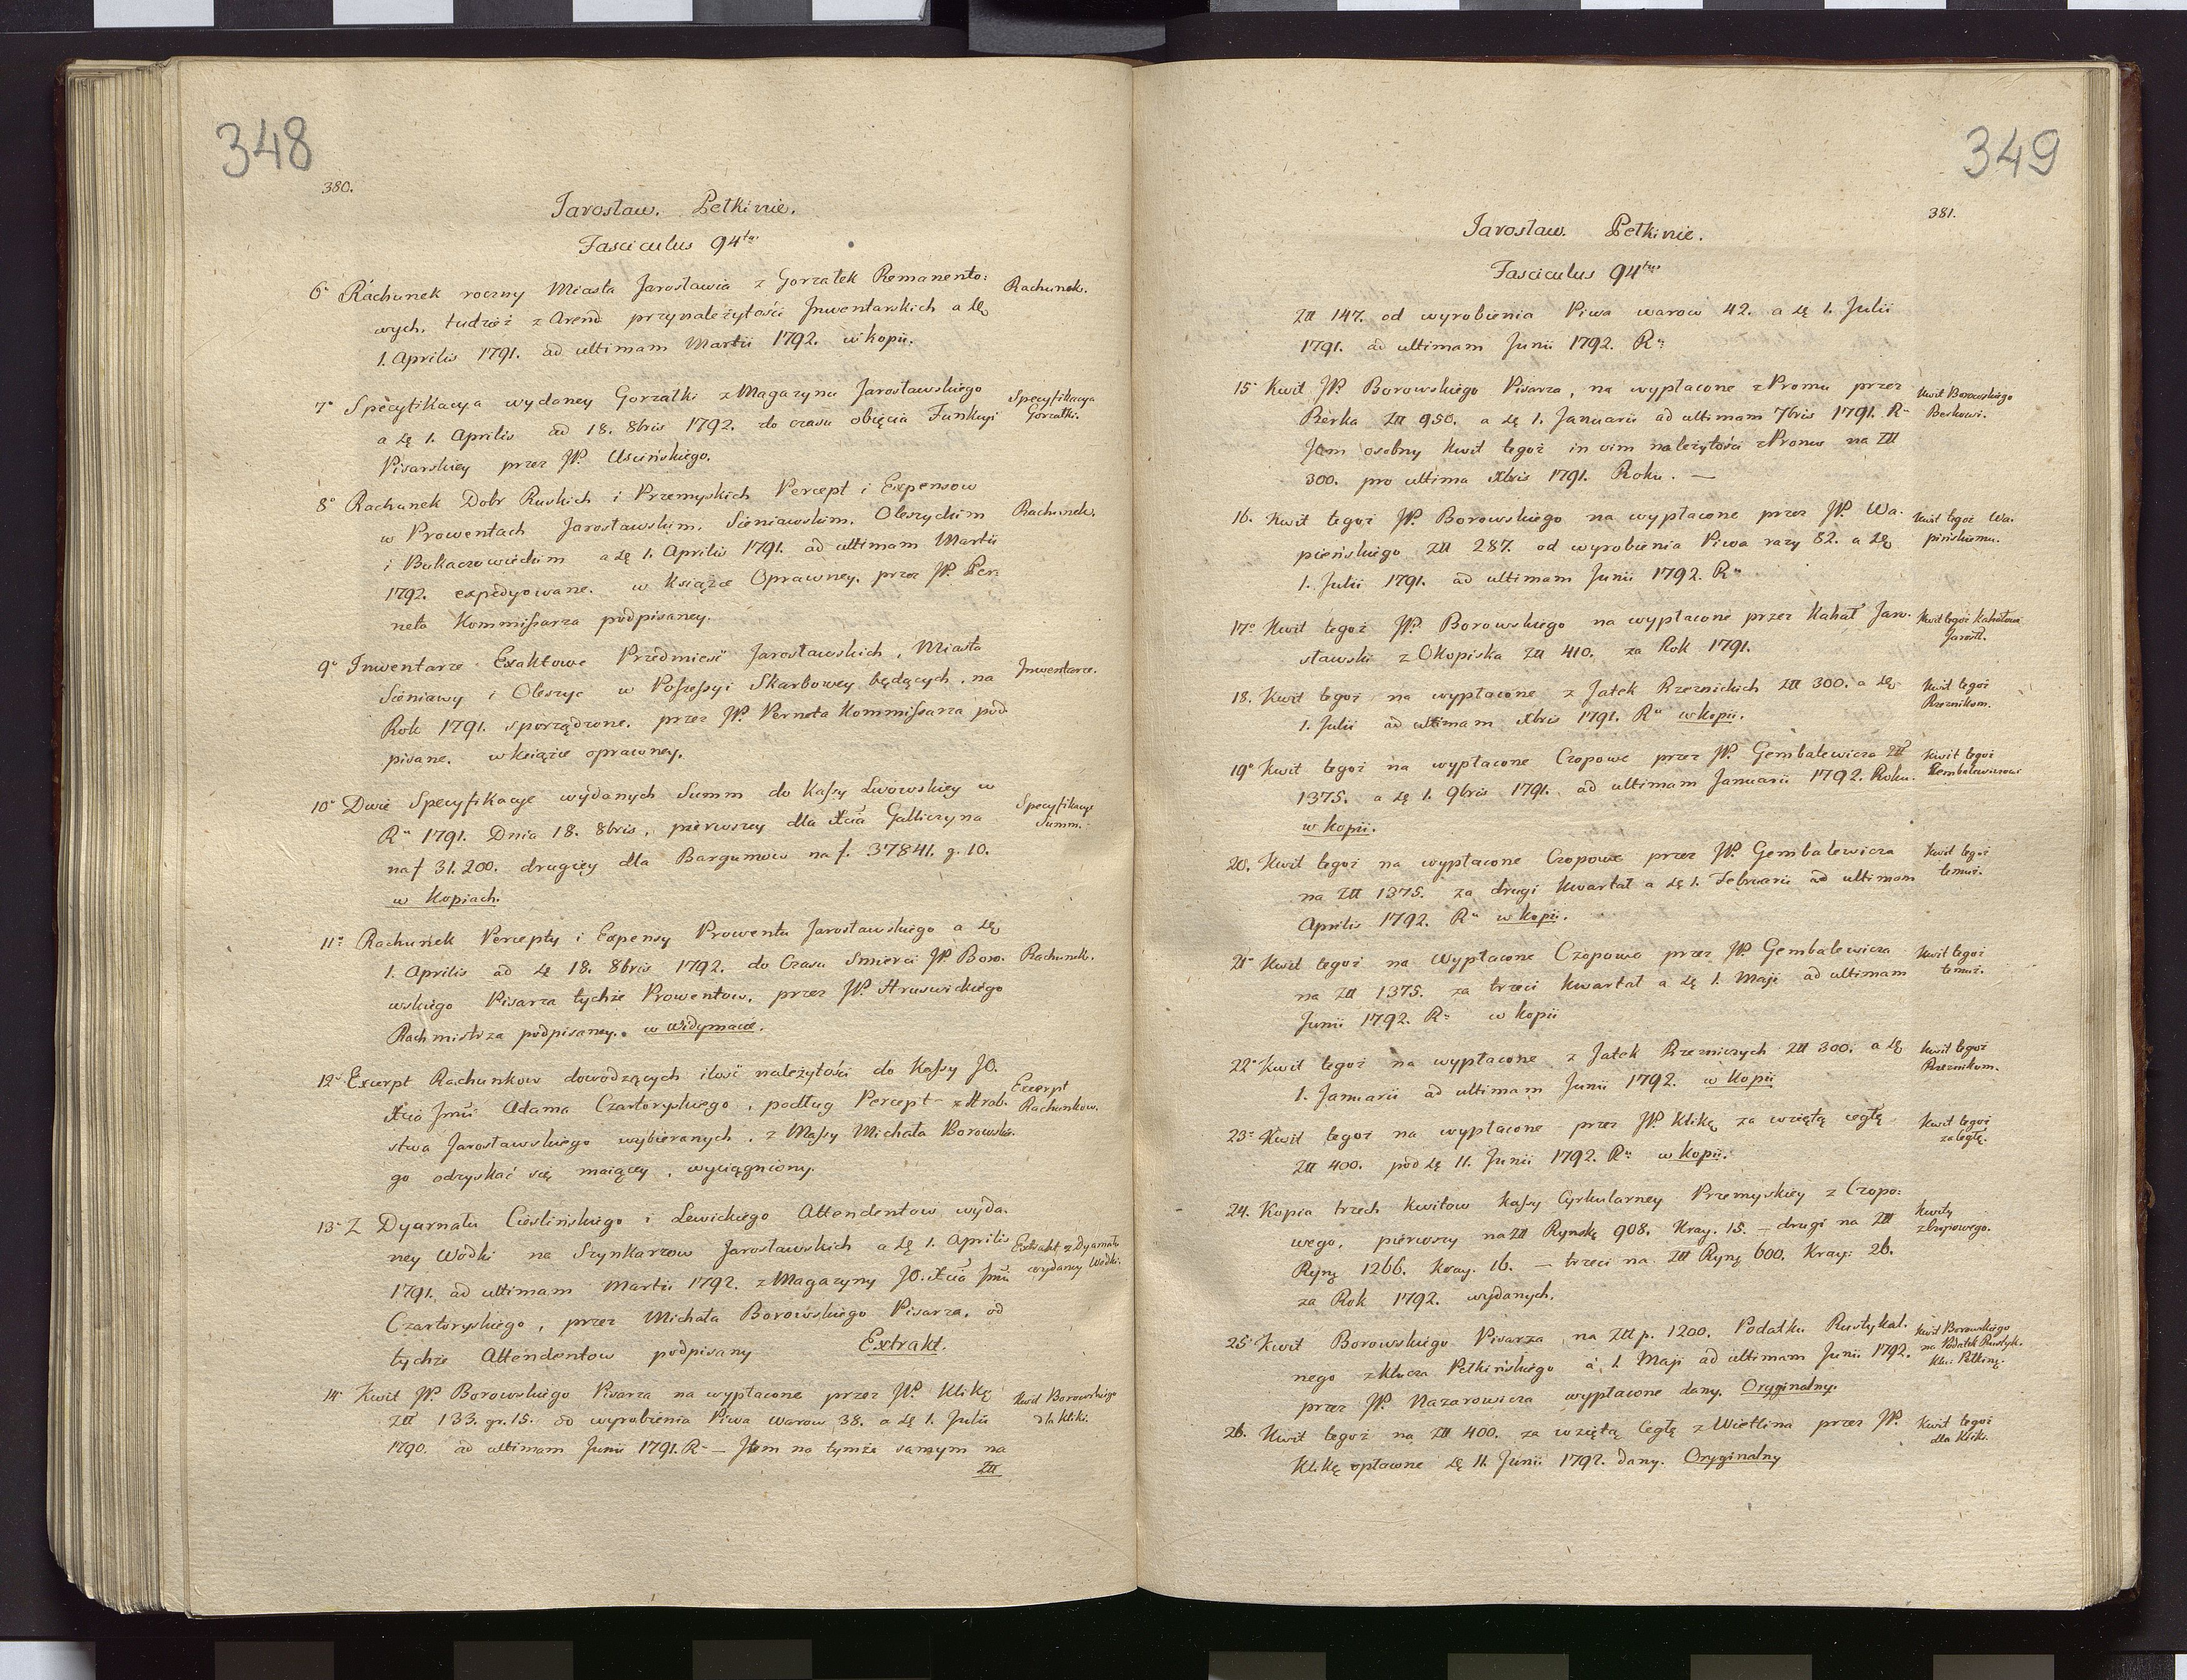 348
380.
Jarosław. Pełkinie.
Fasciculus 94tus
6o Rachunek roczny Miasta Jarosławia z Gorzałek Remanento: Rachunek.
wych, tudzież z Arend przynależytości Inwentarskich a dę
1. Aprilis 1791. ad ultimam Martii 1792. w kopii.
7o Specyfikacya wydaney Gorzałki z Magazynu Jarosławskiego Specyfikacya
a dę 1. Aprilis ad 18. 8bris 1792. do czasu objęcia Funkcyi Gorzałki.
Pisarskiey przez JP. Uscińskiego.
8o Rachunek Dobr Ruskich i Przemyskich Percept i Expensow
w Prowentach Jarosławskim, Sieniawskim, Oleszyckim Rachunek.
i Bukaczowieckim a dę 1. Aprilis 1791. ad ultimam Martii
1792. expedyowane. w Książce Oprawney, przez JP. Per:
neta Kommissarza podpisaney.
9o Inwentarze Exaktowe Przedmieść Jarosławskich, Miasta
Sieniawy i Oleszyc w Possessyi Skarbowey będących, na Inwentarze.
Rok 1791. sporządzone, przez JP. Perneta Kommissarza pod
pisane. w książce oprawney.
10o Dwie Specyfikacye wydanych Summ do Kassy Lwowskiey w Specyfikacye
Ru 1791. Dnia 18. 8bris, pierwszey dla Xcia Galliczyna Summ.
na f 31.200. drugiey dla Bargumow na f. 37841. g. 10.
w Kopiach.
11o Rachunek Percepty i Expensy Prowentu Jarosławskiego a dę
1. Aprilis ad dę 18. 8bris 1792. do Czasu Smierci JP. Boro- Rachunek.
wskiego Pisarza tychże Prowentow, przez JP. Hruswickiego
Rachmistrza podpisaney. w Widymacie.
12o Excerpt Rachunkow dowodzących ilość należytości do Kassy JO. Excerpt
Xcia Jmci Adama Czartoryskiego, podług Percept z Hrab- Rachunkow.
stwa Jarosławskiego wybieranych, z Massy Michała Borowskie-
go odzyskać się maiącey, wyciągniony.
13o Z Dyarnału Cieslińskiego i Lewickiego Attendentow wyda-
ney Wodki na Szynkarzow Jarosławskich a dę 1. Aprilis Extrakt z Dyarnału
1791. ad ultimam Martii 1792. z Magazyny JO. Xcia Jmci wydaney Wodki.
Czartoryskiego, przez Michała Borowskiego Pisarza, od
tychże Attendentow podpisany Extrakt.
14o Kwit JP. Borowskiego Pisarza na wypłacone przez JP. Klikę Kwit Borowskiego
Złł 133. gr. 15. od wyrobienia Piwa warow 38. a dę 1. Julii dla Kliki.
1790. ad ultimam Junii 1791. R- — Item na tymże samym na
Złł
349
381.
Jarosław. Pełkinie.
Fasciculus 94tus
Złł 147. od wyrobienia Piwa warow 42. a dę 1. Julii
1791. ad ultimam Junii 1792. Ru
15o Kwit JP. Borowskiego Pisarza, na wypłacone z Promu przez Kwit Borowskiego
Berka Złł 950. a dę 1. Januarii ad ultimam 7bris 1791. R- Berkowi.
Item osobny Kwit tegoż in vim należytości z Promu na Złł
300. pro ultima Xbris 1791. Roku. —
16. Kwit tegoż JP. Borowskiego na wypłacone przez JP. Wa- Kwit tegoż Wa-
pieńskiego Złł 287. od wyrobienia Piwa razy 82. a dę pińskiemu.
1. Julii 1791. ad ultimam Junii 1792. Ru
17o Kwit tegoż JP. Borowskiego na wypłacone przez Kahał Jaro- Kwit tegoż Kahałowi
sławski z Okopiska Złł 410. za Rok 1791. Jarosł.
18. Kwit tegoż na wypłacone z Jatek Rzeznickich Złł 300. a dę Kwit tegoż
1. Julii ad ultimam Xbris 1791. Ru w kopii. Rzeznikom.
19o Kwit tegoż na wypłacone Czopowe przez JP. Gembalewicza Złł Kwit tegoż
1375. a dę 1. 9bris 1791. ad ultimam Januarii 1792. Roku. Gembalewiczowi
w kopii.
20. Kwit tegoż na wypłacone Czopowe przez JP. Gembalewicza Kwit tegoż
na Złł 1375. za drugi Kwartał a dę 1. Februarii ad ultimam temuż.
Aprilis 1792. Ru w kopii.
21o Kwit tegoż na Wypłacone Czopowe przez JP. Gembalewicza Kwit tegoż
na Złł 1375. za trzeci Kwartał a dę 1. Maji ad ultimam temuż.
Junii 1792. R- w kopii
22o Kwit tegoż na wypłacone z Jatek Rzezniczych Złł 300. a dę Kwit tegoż
1. Januarii ad ultimam Junii 1792. w Kopii Rzeznikom.
23o Kwit tegoż na wypłacone przez JP. Klikę za wziętą cegłę Kwit tegoż
Złł 400. pod dę 11. Junii 1792. Ru w kopii. za cegłę.
24. Kopia trzech Kwitow Kassy Cyrkularney Przemyskiey z Czopo: Kwity
wego, pierwszy na Złł Ryńskę 908. Kray. 15. — drugi na Złł z Czopowego.
Ryńę 1266. Kray. 16. — trzeci na Złł Ryńę 600. Kray: 26.
za Rok 1792. wydanych.
25o Kwit Borowskiego Pisarza na Złł p. 1200. Podatku Rustykal- Kwit Borowskiego
nego z klucza Pełkińskiego a 1. Maji ad ultimam Junii 1792. na Podatek Rustyk.
przez JP. Nazarowicza wypłacone dany. Oryginalny. Klu: Pełkinę.
26. Kwit tegoż na Złł 400. za wziętą Cegłę z Wietlina przez JP. Kwit tegoż
Klikę opłacone dę 11. Junii 1792. dany. Oryginalny dla Kliki.